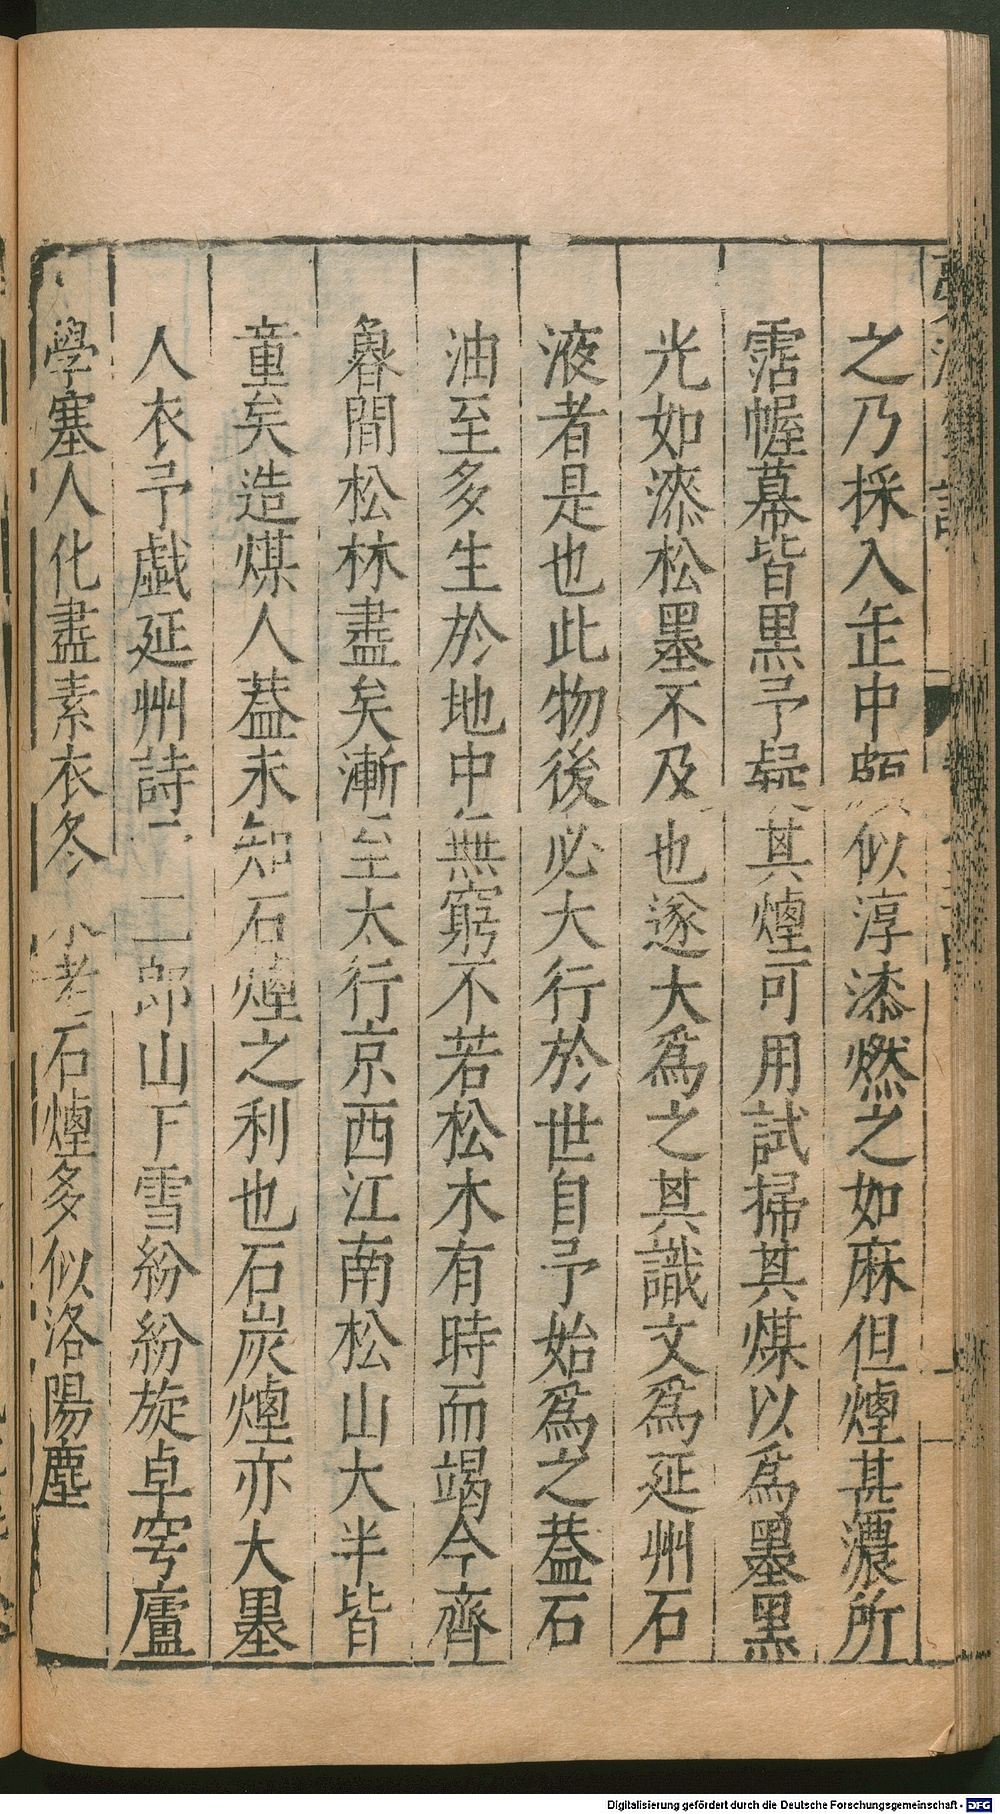 之乃採入缶中頗似淳漆燃之如麻但煙甚濃所
霑幄幕皆黒予疑其煙可用試掃其煤以爲墨黒
光如漆松墨不及也遂大爲之其識文爲延州石
液者是也此物後必大行於世自予始爲之葢石
油至多生於地中無窮不若松木有時而竭今齊
魯間松林盡矣漸至太行京西江南松山大半皆
童矣造煤人葢未知石煙之利也石炭煙亦大墨
人衣予戯延州詩二郎山下雪紛紛旋卓穹廬
學塞人化盡素衣冬 老石煙多似洛陽塵
Digitalisierung gefördert durch die Deutsche Forschungsgemeinschaft - DFG